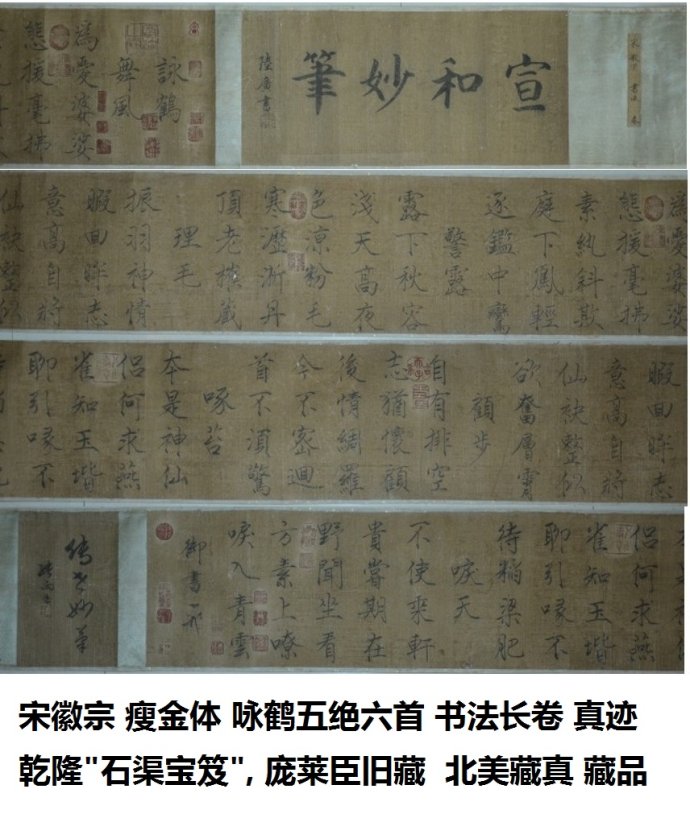 宣和妙筆
陸廣書
詠鶴
舞風
為愛婆娑
態援毫拂
為愛婆娑
態援毫拂
素紈斜欹
庭下鳳輕
逐鑑中鸞
警露
露下秋容
淺天高夜
色涼粉毛
寒瀝漸丹
頂老藏
理毛
振羽神情
暇回眸志
意高自將
仙袂整似
暇回眸志
意高自將
仙袂整似
欲奮層霄
顧步
自有排空
志猶懷顧
後情綢羅
今不密迴
首不須驚
啄苔
本是神仙
侶何求燕
雀知玉堦
聊引喙不
侶何求燕
雀知玉堦
聊引喙不
待稻粱肥
唳天
不使乘軒
貴嘗期在
野聞坐看
方素上嘹
唳入青雲
御書
傳世妙筆
宋徽宗 瘦金体 咏鹤五绝六首 书法长卷 真迹
乾隆"石渠宝笈", 庞莱臣旧藏 北美藏真 藏品